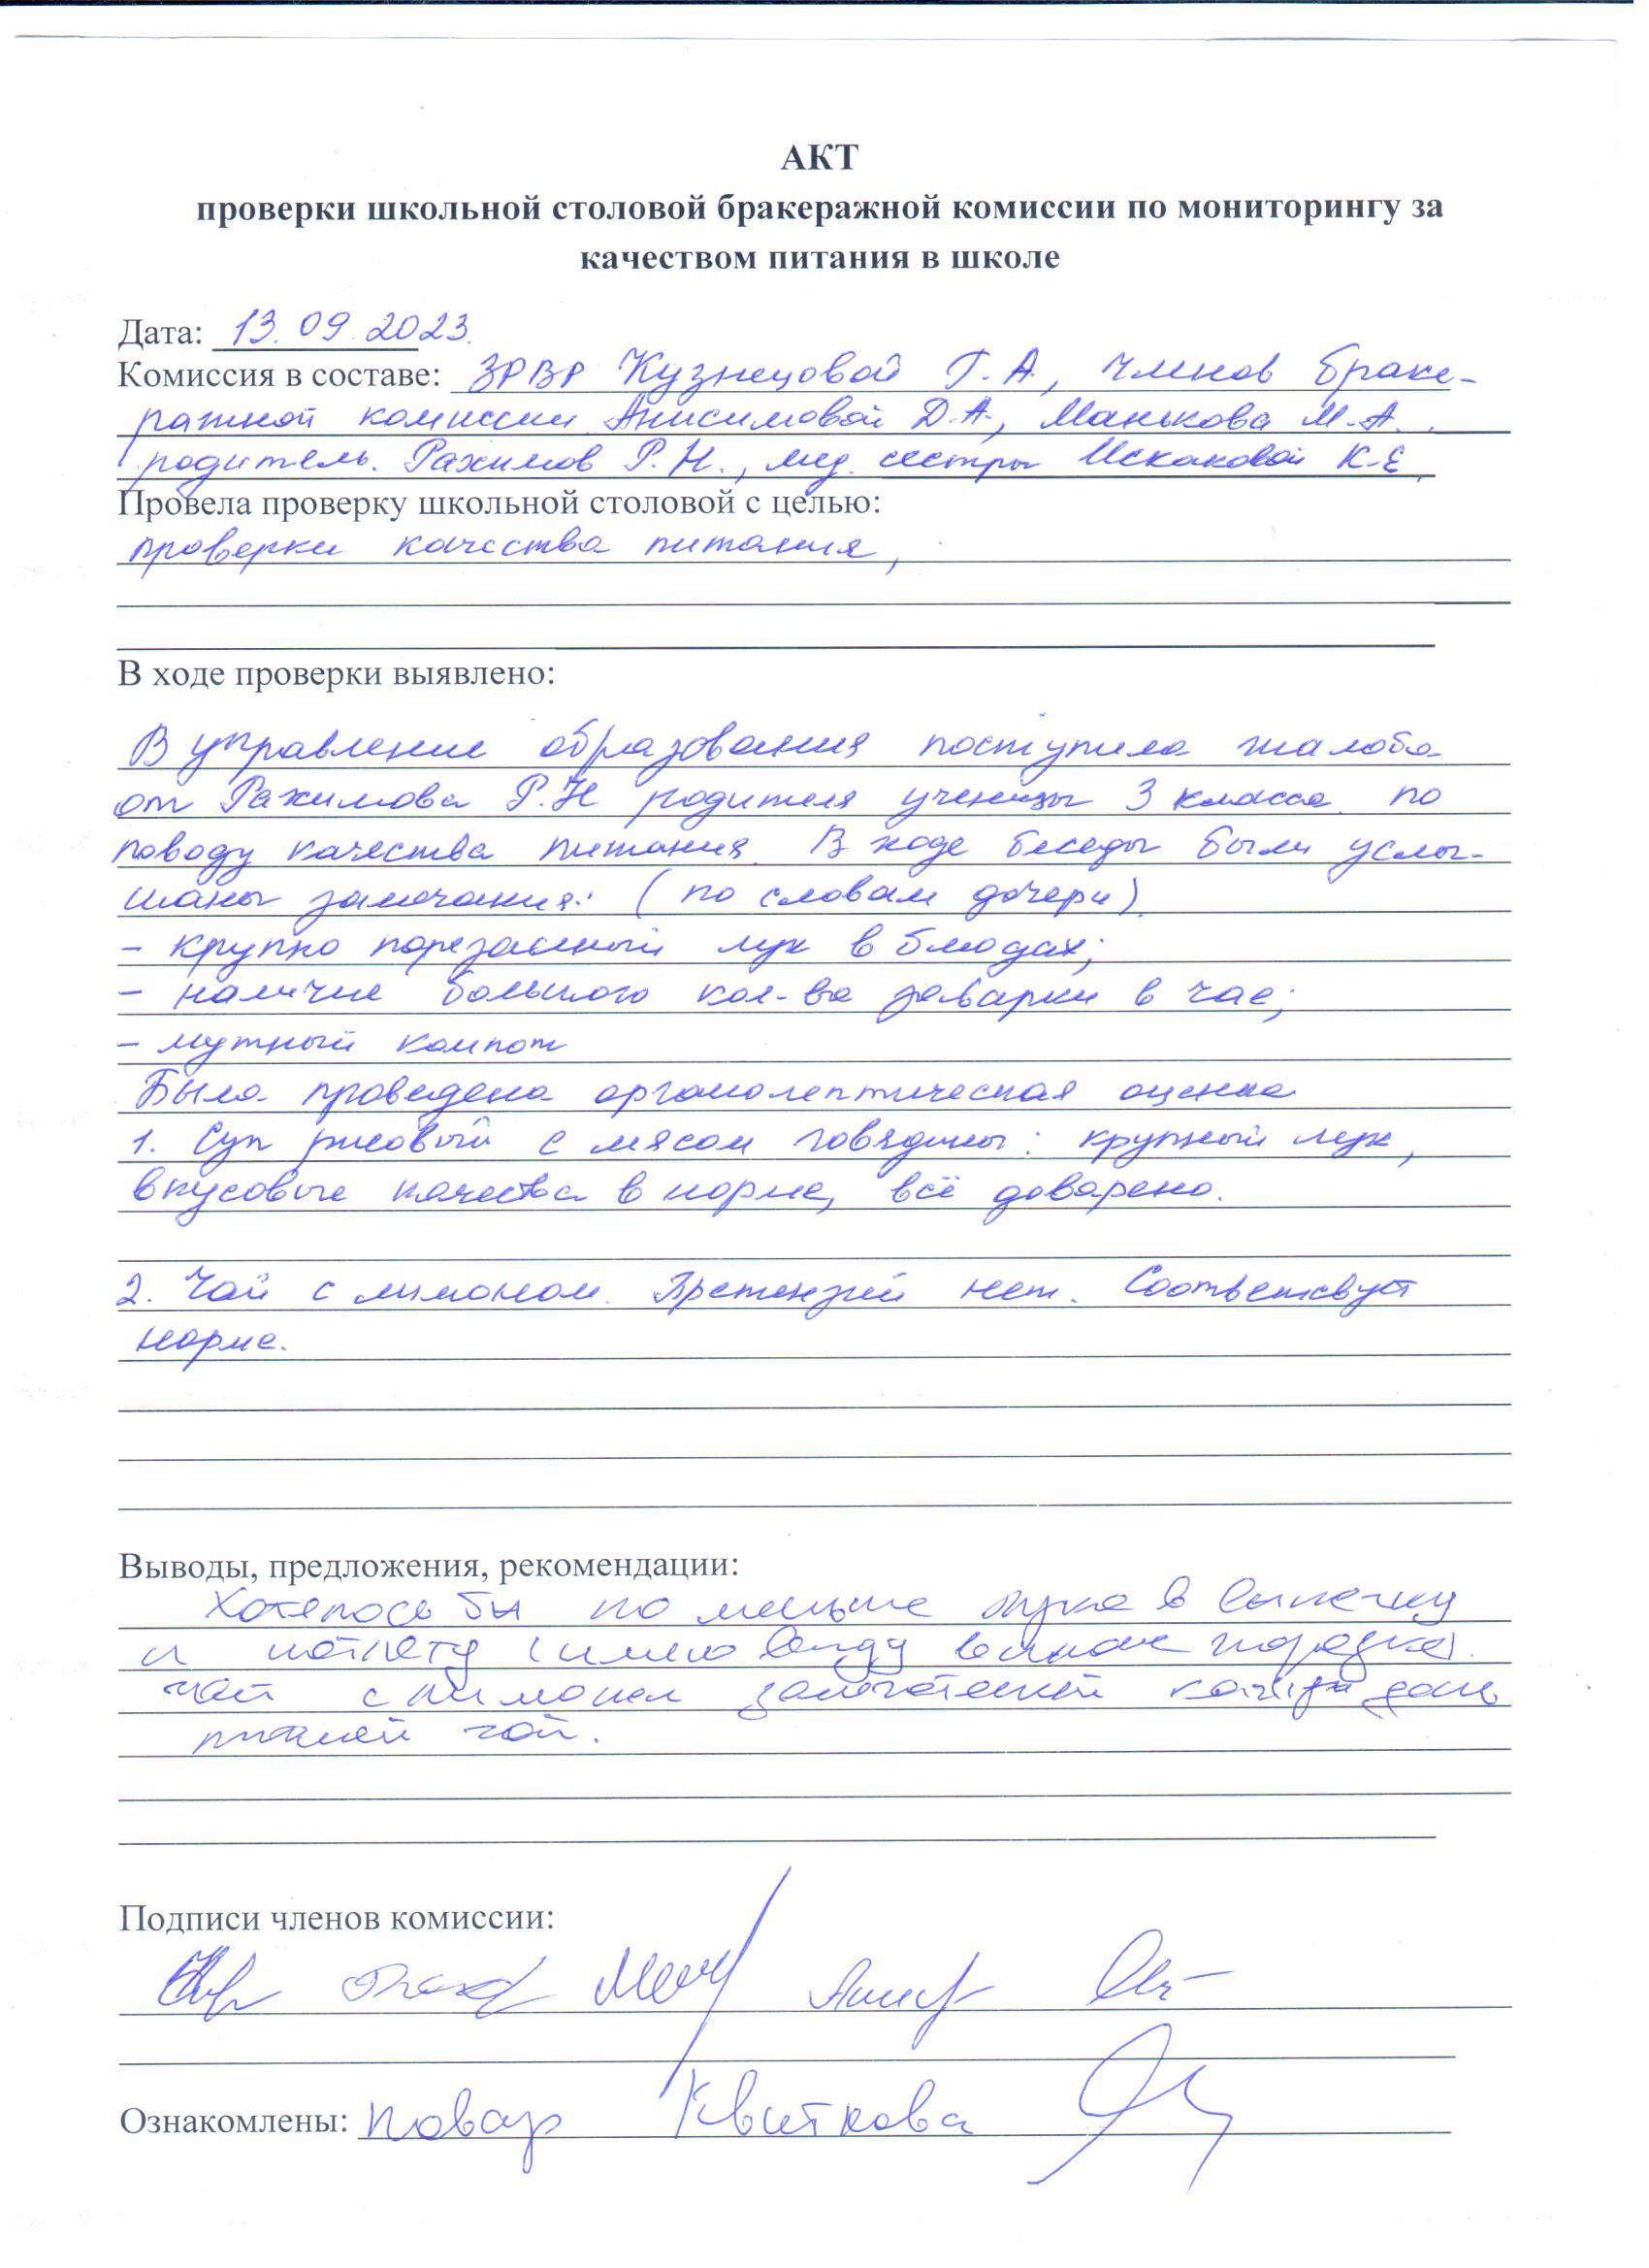 АКТ
проверки школьной столовой бракеражной комиссии по мониторингу за
качеством питания в школе
Дата: 13.09.2023.
Комиссия в составе: ЗРВР Кузнецовой Г.А, членов браке-
ражной комиссии Анисимовой Д.А, Манькова М.А.,
родитель. Рахимов Р.Н., мед. сестры Искаковой К.Е,
Провела проверку школьной столовой с целью:
проверки качества питания,
В ходе проверки выявлено:
В управление образования поступила жалоба
от Рахимова Р.Н родителя ученицы 3 класса по
поводу качества питания. В ходе беседы были услы-
шаны замечания: (по словам дочери)
- крупно порезанный лук в блюдах;
- наличие большого кол-ва заварки в чае;
- мутный компот
Была проведена органолептическая оценка
1. Суп рисовый с мясом говядины: крупный лук,
вкусовые качества в норме, всё доварено.
2. Чай с лимоном. Претензий нет. Соответсвует
норме.
Выводы, предложения, рекомендации:
Хотелось бы по меньше лука в
и котлету (имею ввиду
чай с лимоном каждый день
чай.
Подписи членов комиссии:
Ознакомлены: повар Квиткова